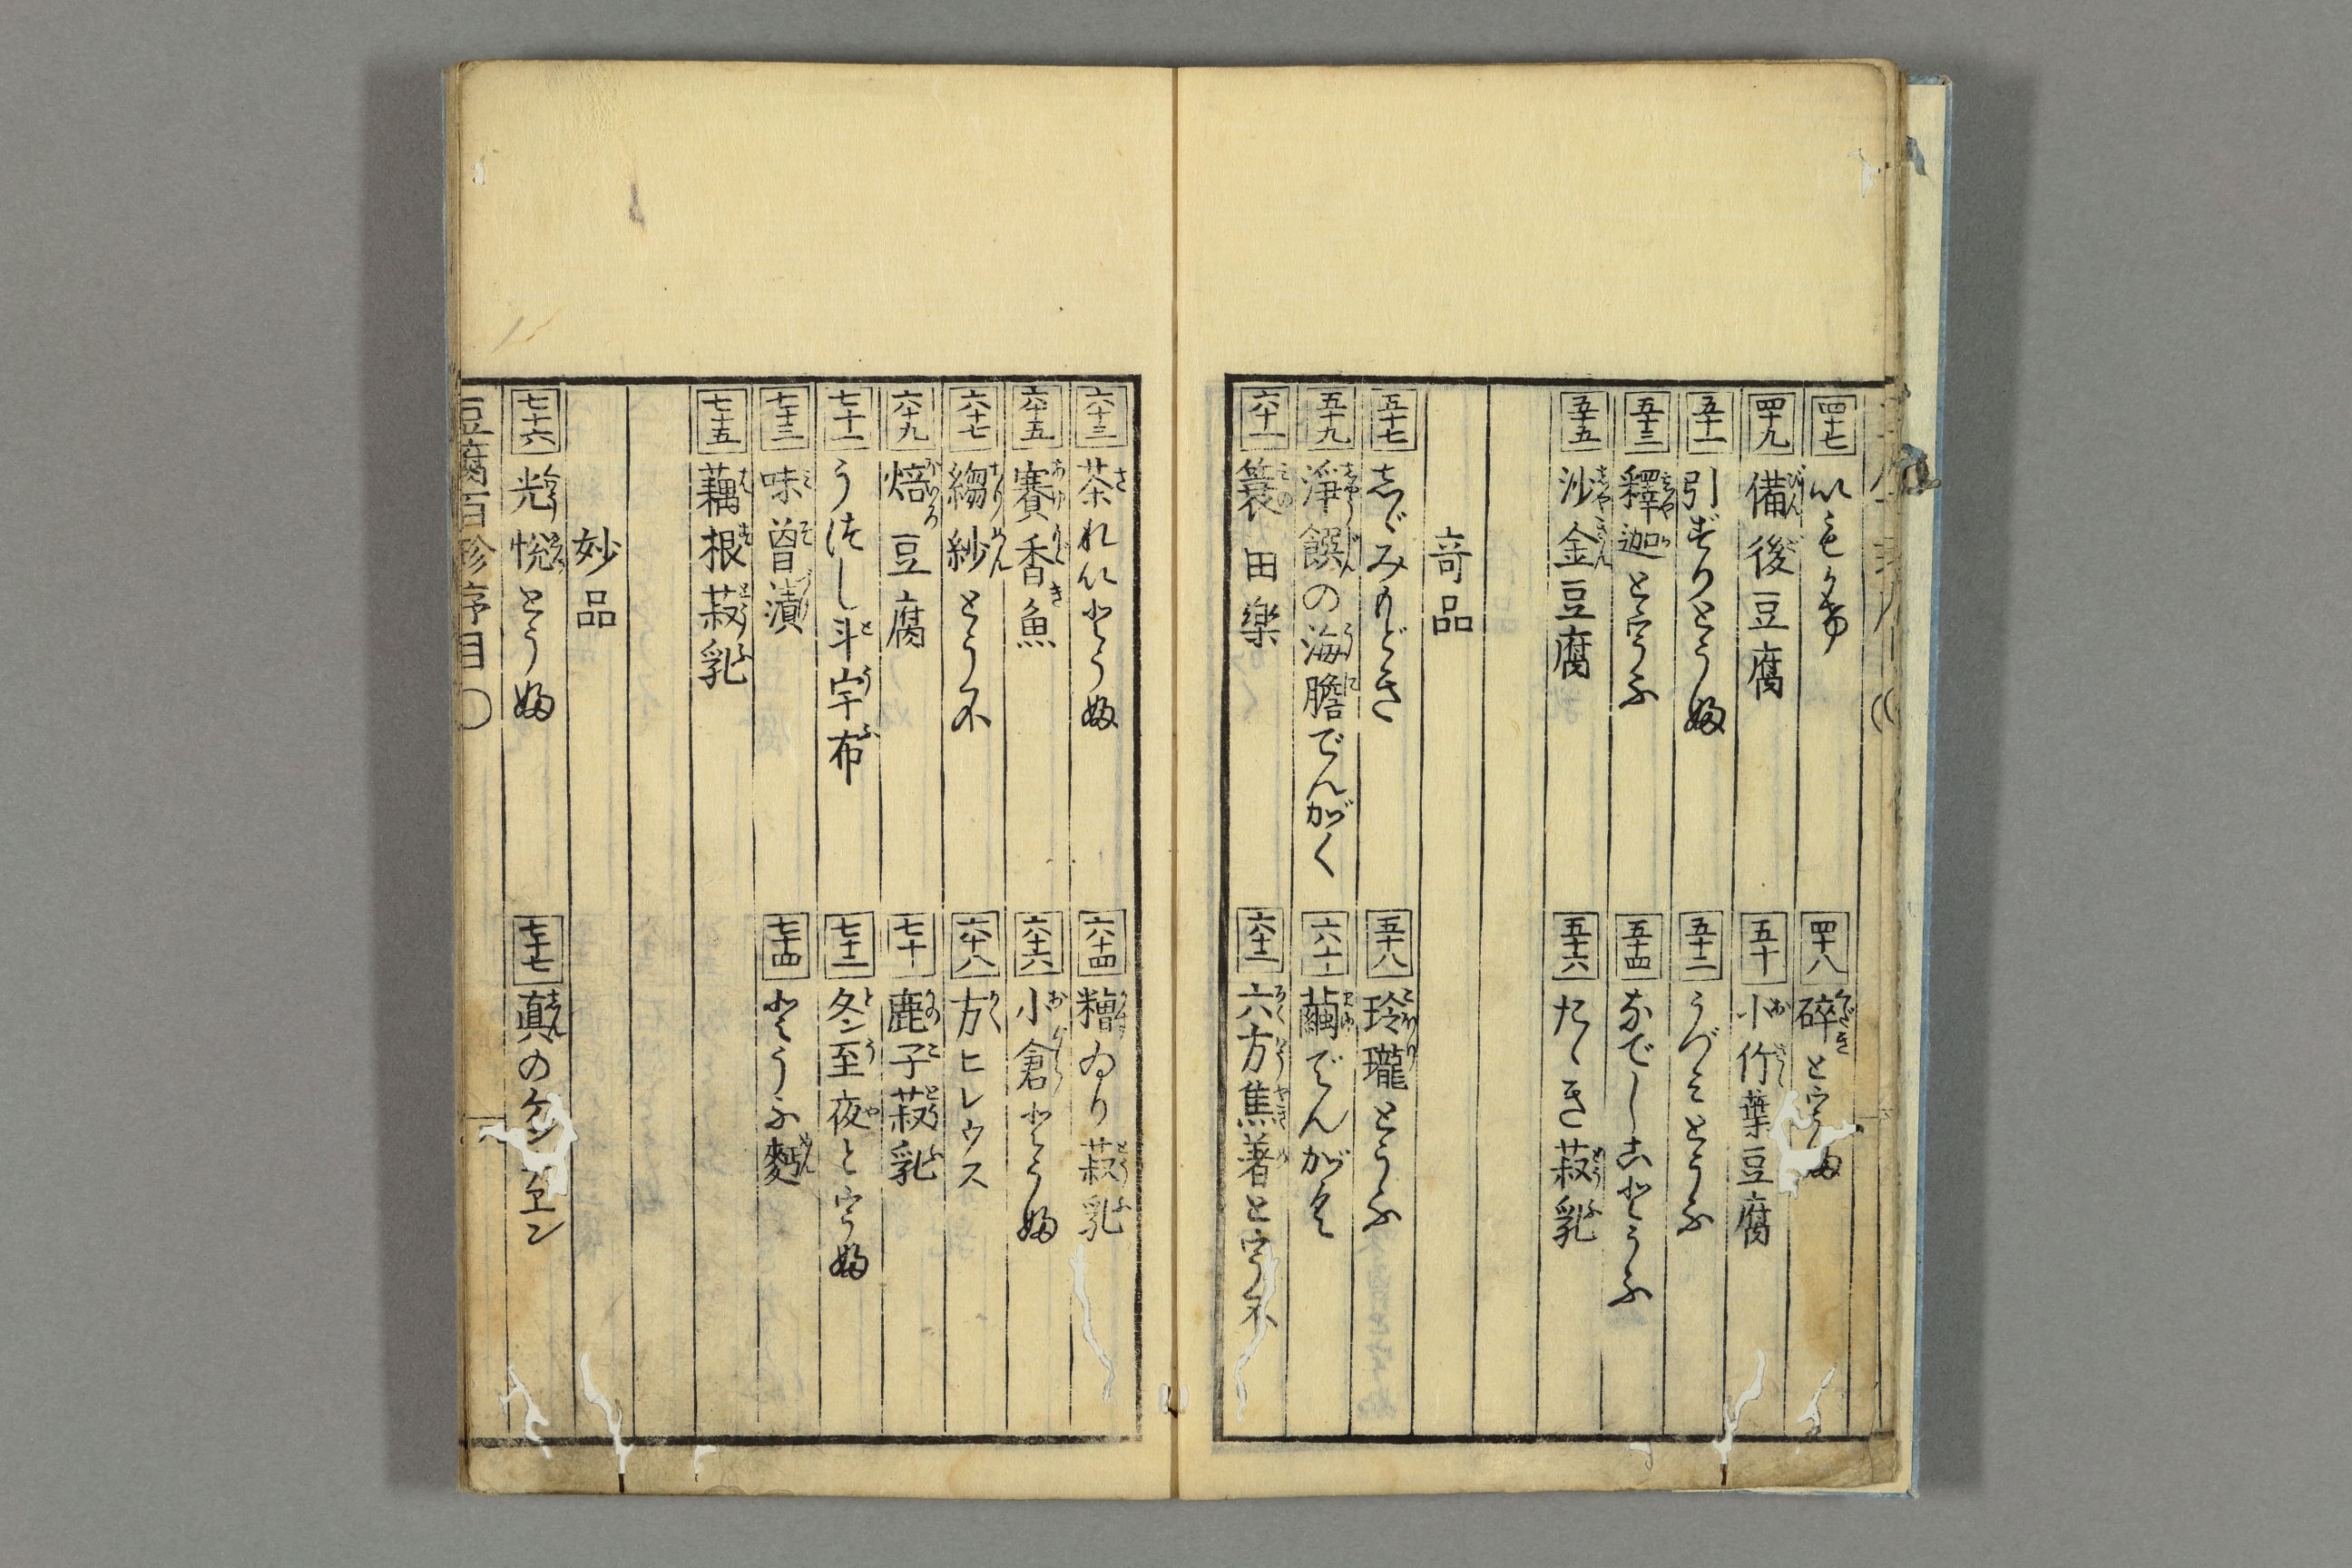 四十七 いもかけ
四十八 碎とうふ
四十九 備後豆腐
五十 小竹葉豆腐
五十一 引ずりとうふ
五十二 うづみとうふ
五十三 釋迦とうふ
五十四 なでしことうふ
五十五 沙金豆腐
五十六 たゝき菽乳
奇品
五十七 しゞみもどき
五十八 玲瓏とうふ
五十九 淨饌の海膽でんがく
六十 繭でんがく
六十一 簑田樂
六十二 六方焦著とうふ
六十三 茶れいとうふ
六十四 糟ゐり菽乳
六十五 賽香魚
六十六 小倉とうふ
六十七 縐紗とうふ
六十八 方ヒレウス
六十九 焙豆腐
七十 鹿子菽乳
七十一 うつし斗宇布
七十二 冬至夜とうふ
七十三 味曽漬
七十四 とうふ麪
七十五 藕根菽乳
妙品
七十六 光悦とうふ
七十七 真のケンチヱン
豆腐百珍序目